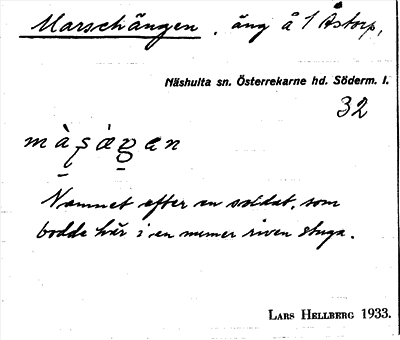 Marschängen, äng å 1 Åstorp,
Näshulta sn. Österrekarne hd. Söderm. l.
32
Namnet efter en soldat, som
bodde här i en numer riven stuga.
LARS HELLBERG 1933.